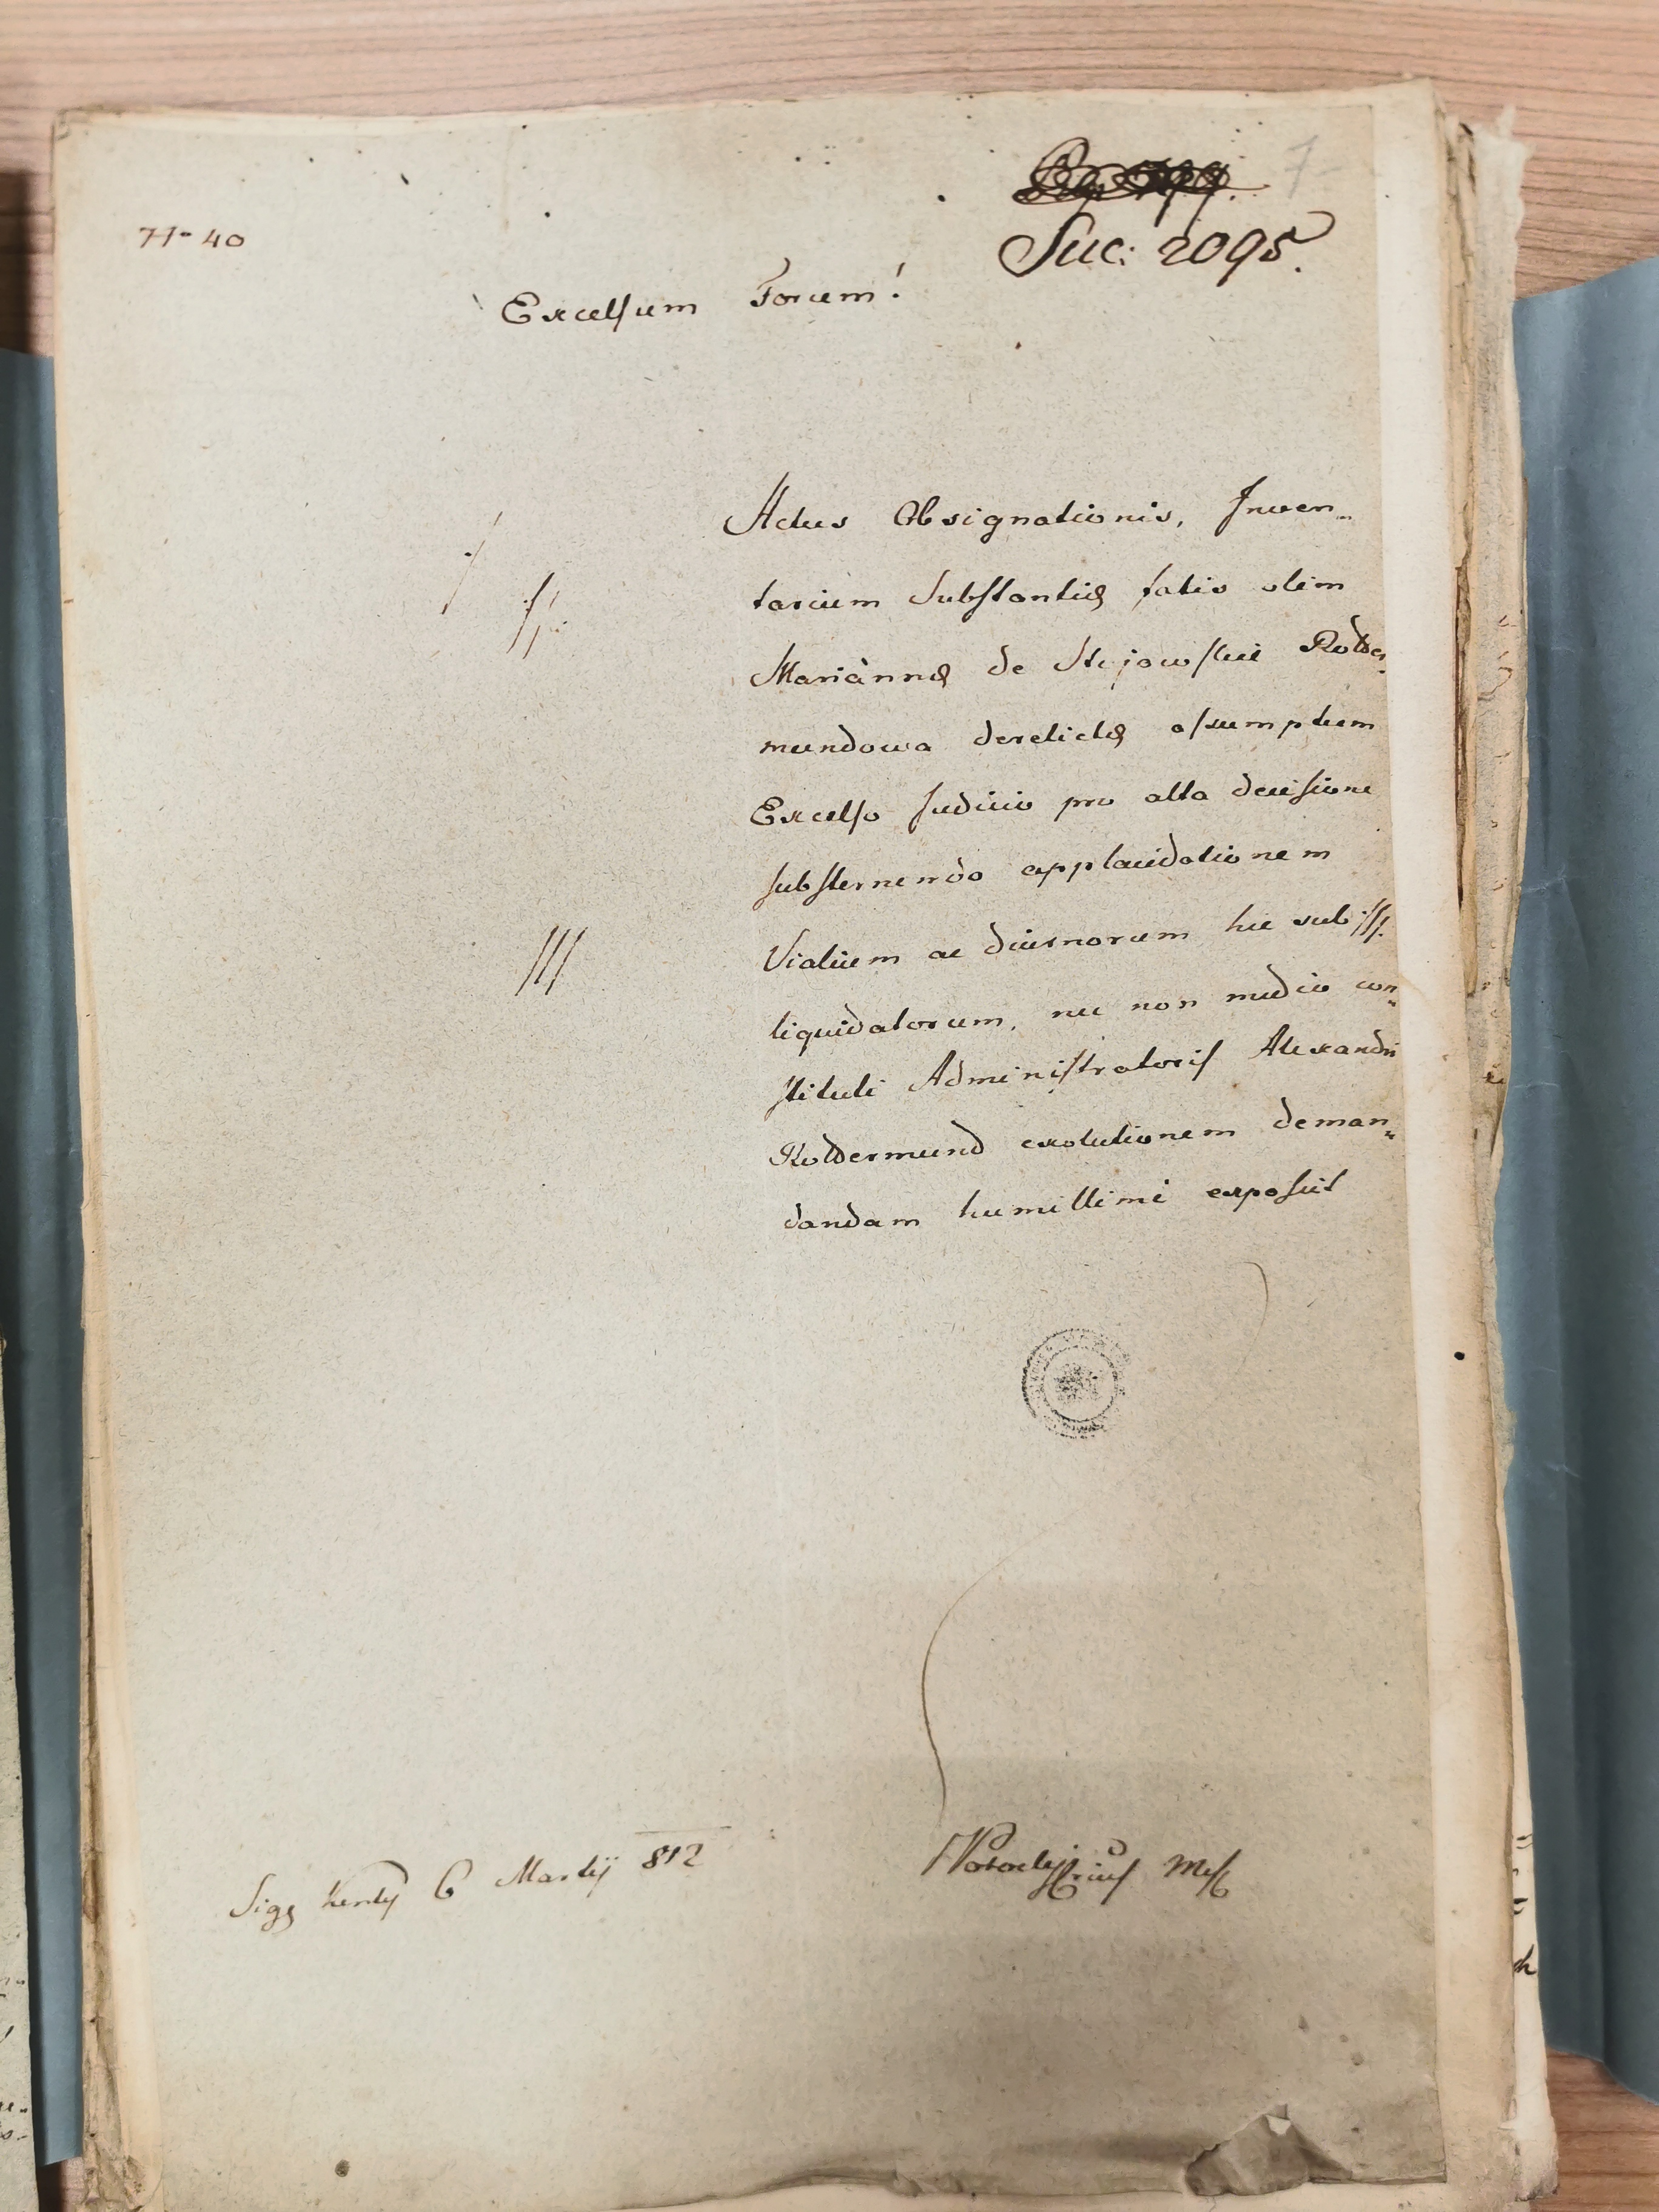 7
71-40
Suc: 2095.
Excelsum Forum!
Actus Obsignationis, Inven-
tarium Substantiæ fatis olim
Mariannæ de Rolder-
mundowa derelictæ assumptum
Excelso Judicio pro alta decisione
substernendo applacidationem
Vialium ac diurnorum hic sub ///.
liquidatorum, nec non medio con-
stituti Administratoris Alexandri
Roldermund exolutionem deman-
dandam humillime exposuit
Sigę Kenty 6 Martij 812